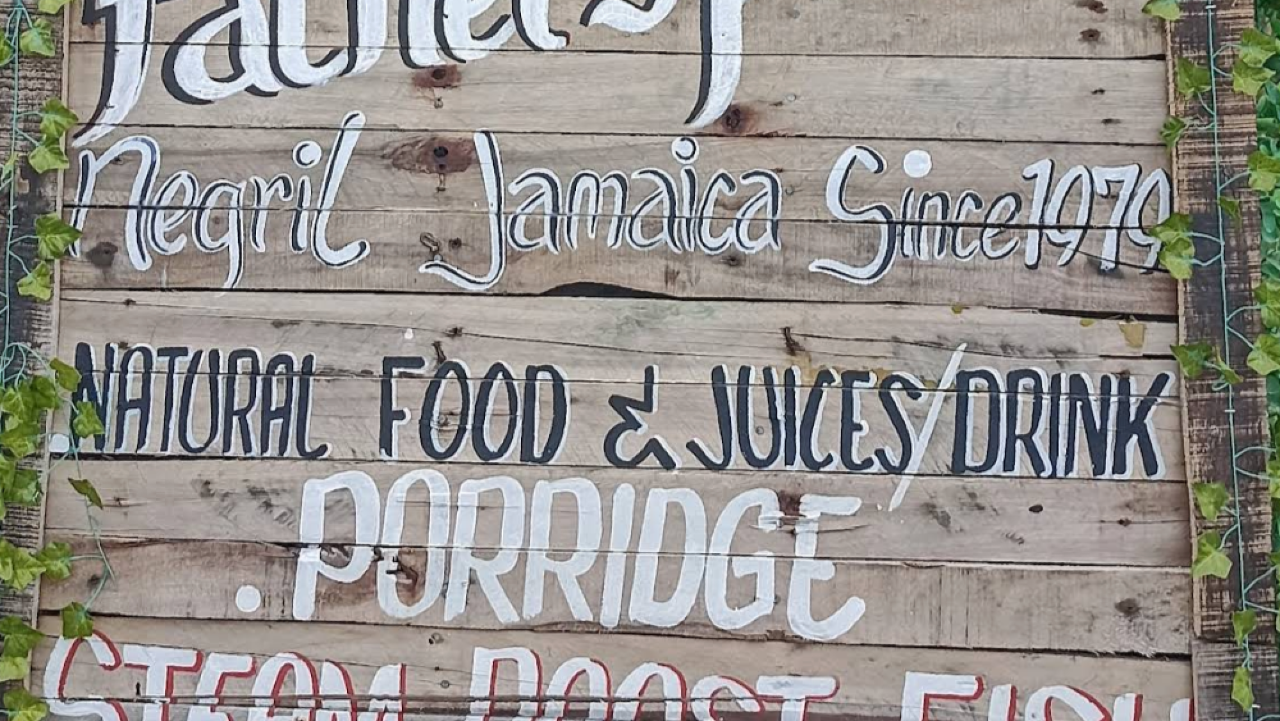 Negril Jamaica Since 1979
.NATURAL FOOD & JUICES/DRINK
.PORRIDGE
STEAM ROAST FISH